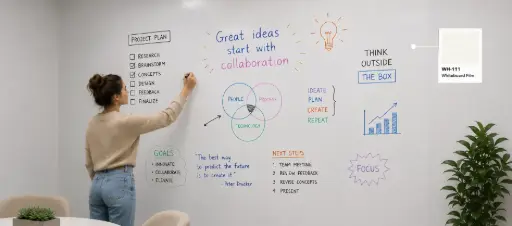 PROJECT PLAN
RESEARCH
BRAINSTORM
CONCEPTS
DESIGN
FEEDBACK
FINALIZE
Great ideas
start with
collaboration
THINK
OUTSIDE
THE BOX
WH-111
Whiteboard Film
PEOPLE
IDEATE
PLAN
CREATE
REPEAT
GOALS
COLLABORATE
"The best way
to predict the future
is to create it"
NEXT STEPS
1 TEAM MEETING
2 FEEDBACK
3 REVISE CONCEPTS
4 PRESENT
FOCUS